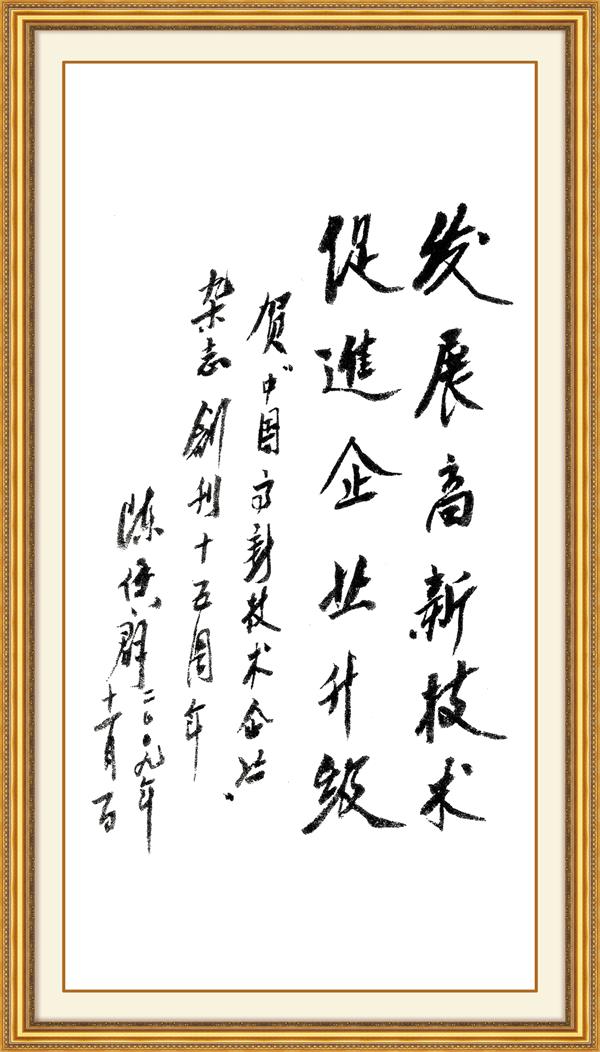 发展高新技术
促進企业升级
贺中国高新技术企业
杂志創刊十五周年
陈群二〇〇九年
十一月